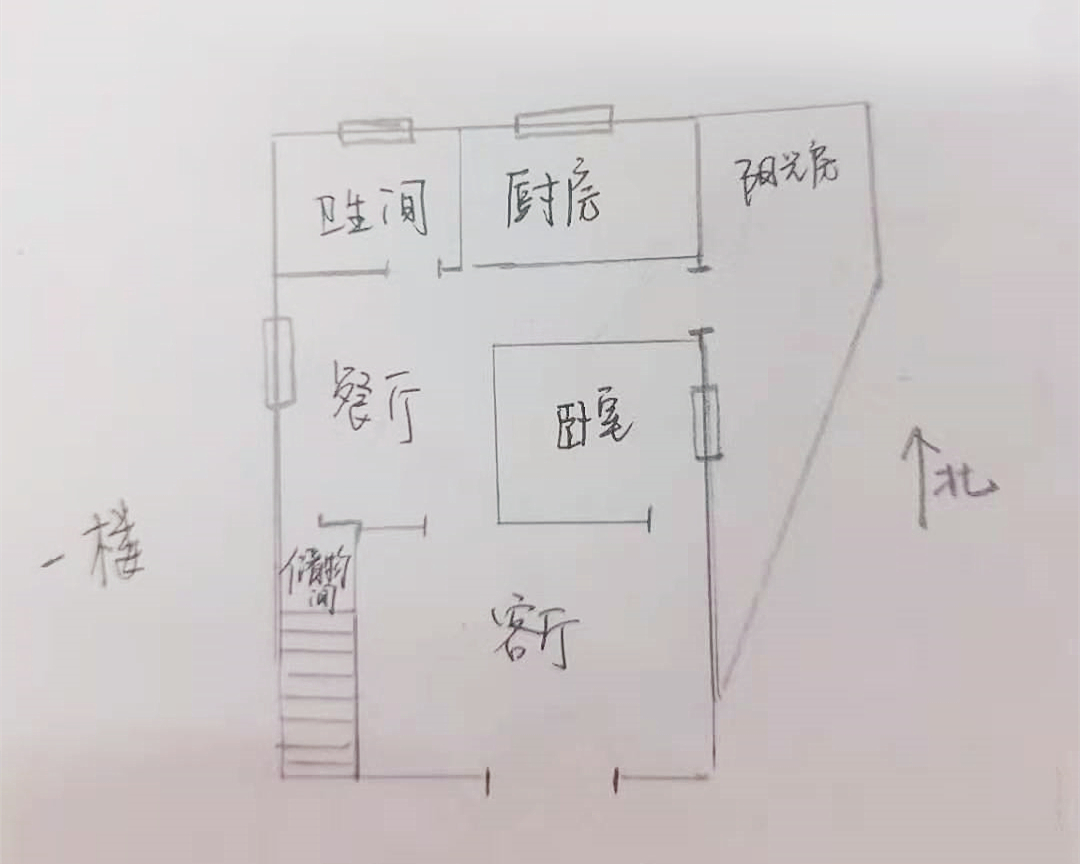 卫生间
厨房
阳光房
餐厅
卧室
北
一楼
储物
间
客厅